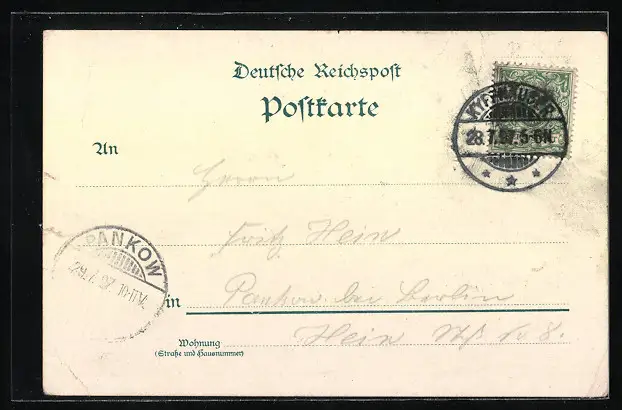 Deutsche Reichspost
Postkarte
KYFFHÄUSER
28.7.97.5-6N.
An
Herrn
Fritz Hein
PANKOW
29.7.97.10-11V.
in Pankow bei Berlin
Wohnung
(Straße und Hausnummer)
Hein Str. 8.